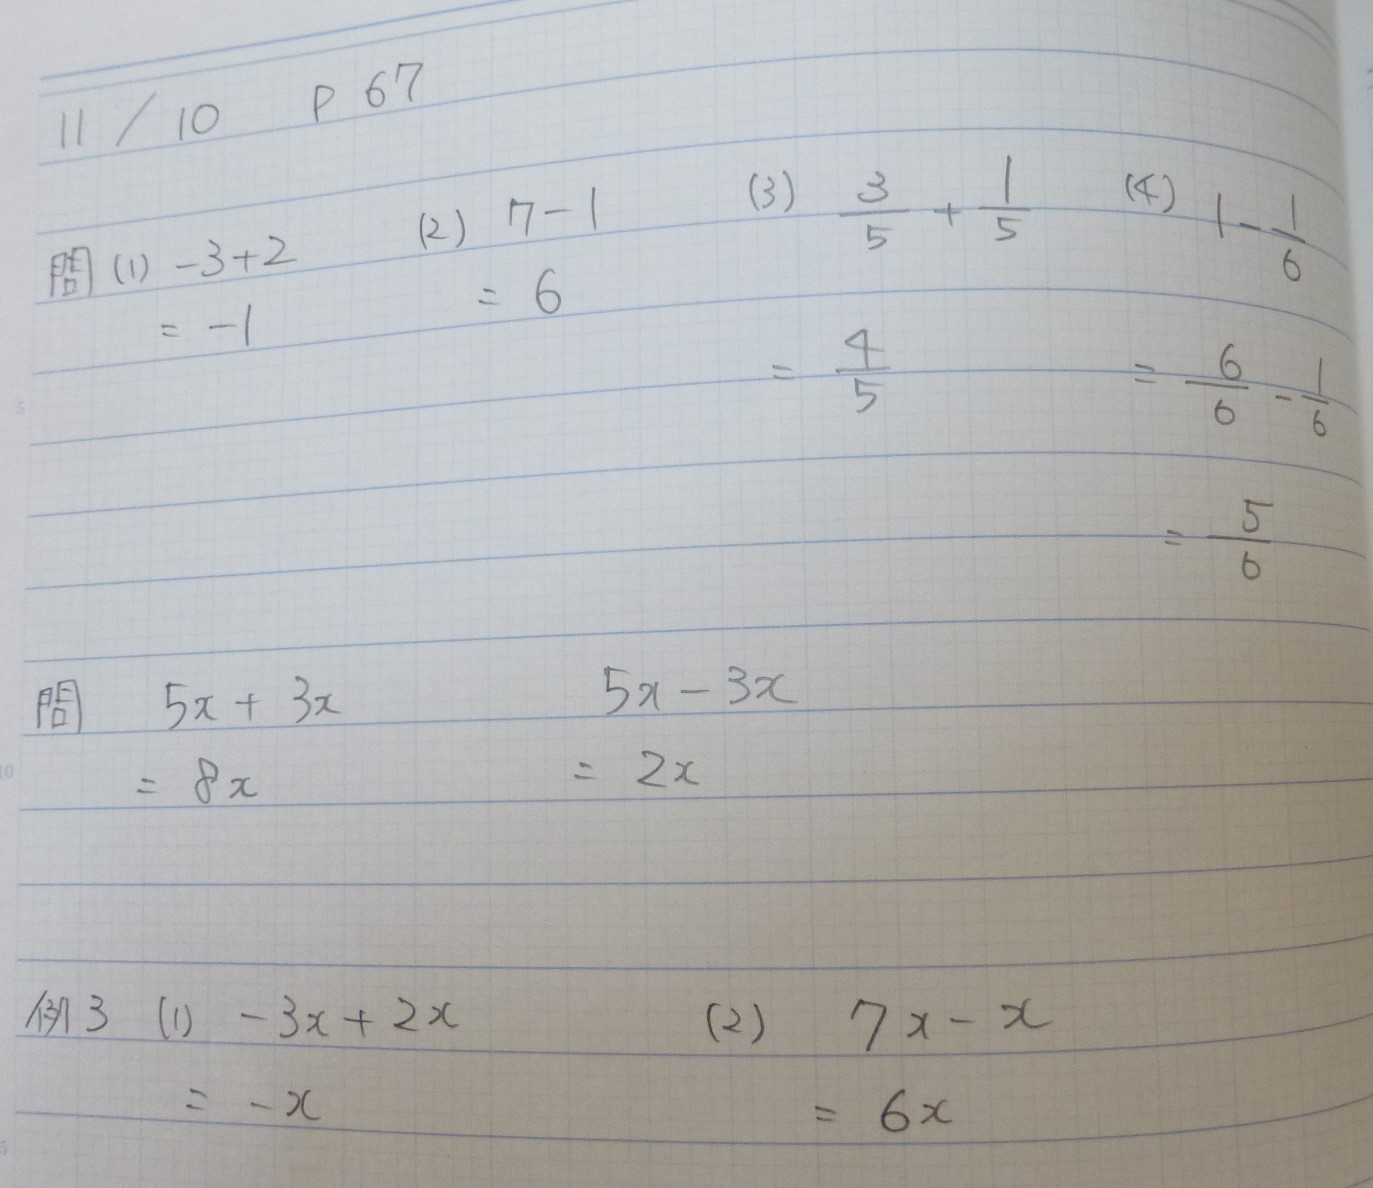 11/10 P 67
問 (1) -3+2 (2) 7-1 (3) 3/5 + 1/5 (4) 1 - 1/6
= -1 = 6 = 4/5 = 6/6 - 1/6
= 5/6
問 5x + 3x 5x - 3x
= 8x = 2x
例3 (1) -3x + 2x (2) 7x - x
= -x = 6x